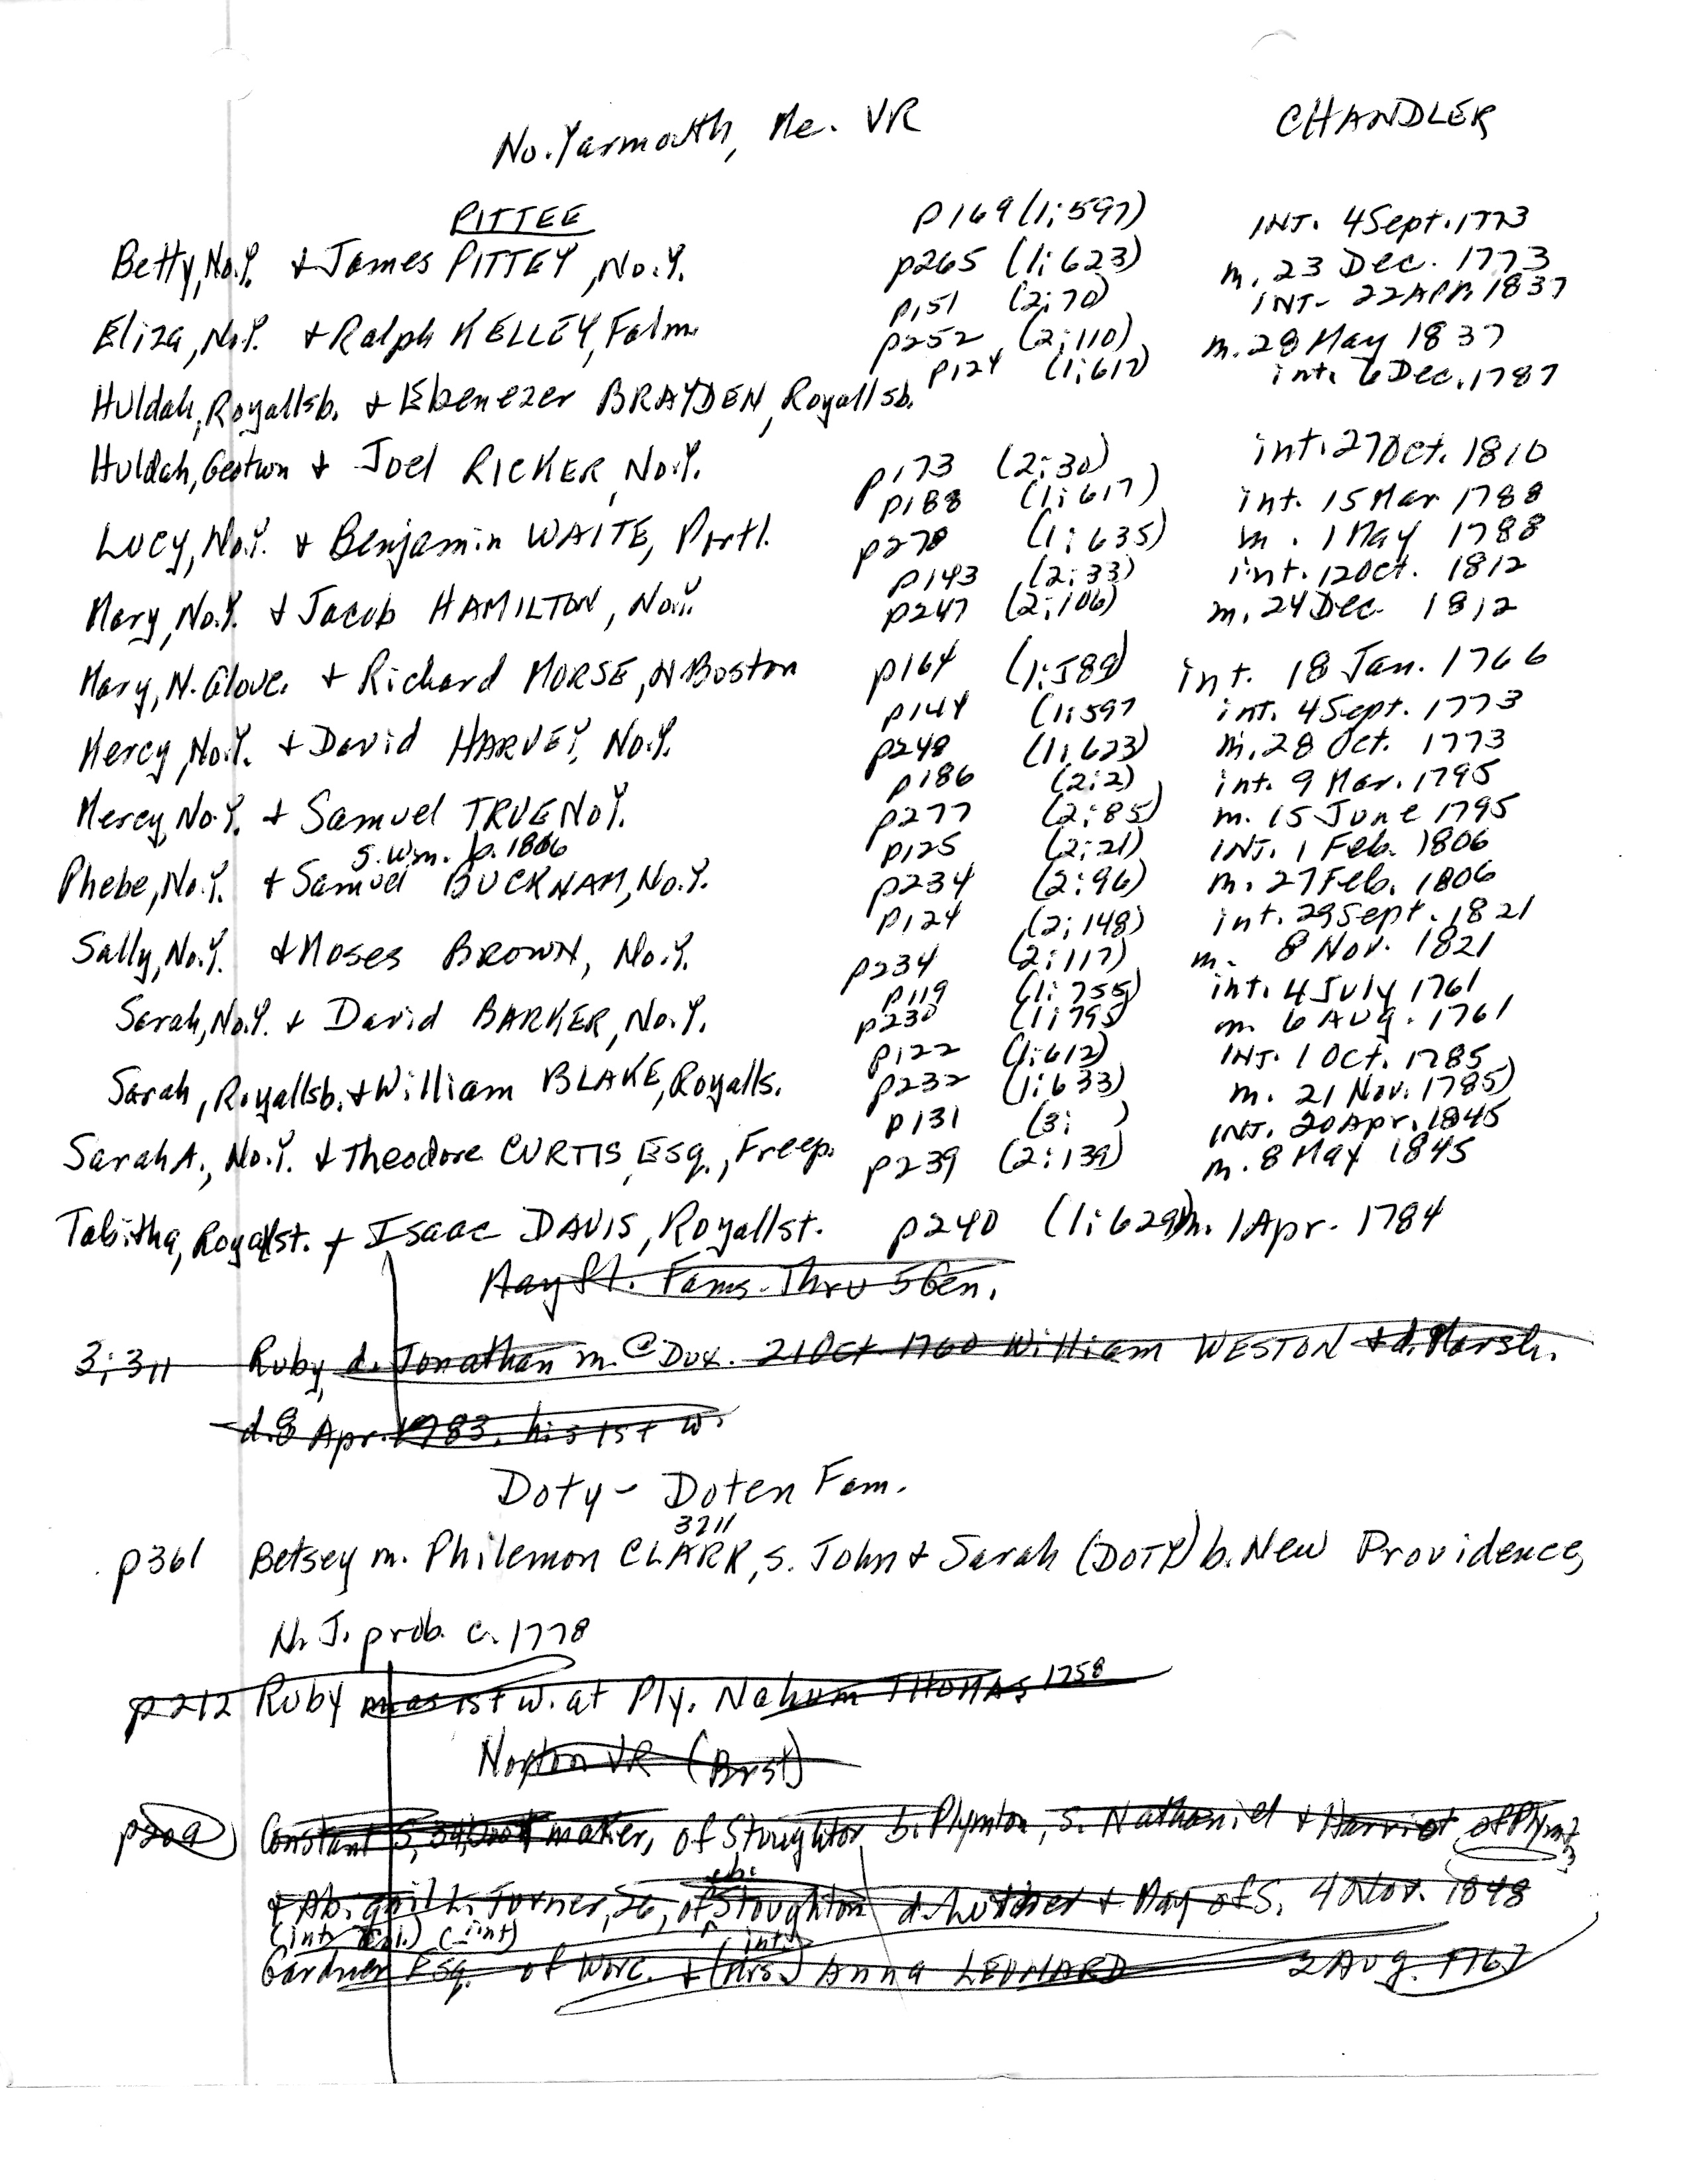 No. Yarmouth, Me. VR CHANDLER
PITTEE p169 (1:597) INT. 4 Sept. 1773
Betty, No.Y. + James PITTEY, No.Y. p265 (1:623) m. 23 Dec. 1773
p151 (2:70) INT- 22 APR 1837
Eliza, No.Y. + Ralph KELLEY, Falm. p252 (2:110) m. 28 May 1837
p124 (1:617) int. 6 Dec. 1787
Huldah, Royallsb. + Ebenezer BRAYDEN, Royallsb.
Huldah, Geotwn + Joel RICKER, No.Y. p173 (2:30) int. 27 Oct. 1810
p188 (1:617) int. 15 Mar 1788
Lucy, No.Y. + Benjamin WAITE, Portl. p278 (1:635) m. 1 May 1788
p143 (2:33) int. 12 Oct. 1812
Mary, No.Y. + Jacob HAMILTON, No.Y. p247 (2:106) m. 24 Dec. 1812
Mary, N. Glouc. + Richard MORSE, N Boston p164 (1:589) int. 18 Jan. 1766
p144 (1:597 int. 4 Sept. 1773
Mercy, No.Y. + David HARVEY, No.Y. p248 (1:623) m. 28 Oct. 1773
p186 (2:2) int. 9 Mar. 1795
Mercy, No.Y. + Samuel TRUE No Y. p277 (2:85) m. 15 June 1795
s. Wm. b. 1806 p125 (2:21) INT. 1 Feb. 1806
Phebe, No.Y. + Samuel BUCKNAM, No.Y. p234 (2:96) m. 27 Feb. 1806
p124 (2:148) int. 29 Sept. 1821
Sally, No.Y. + Moses BROWN, No.Y. p234 (2:117) m. 8 Nov. 1821
p119 (1:755) int. 4 July 1761
Sarah, No.Y. + David BARKER, No.Y. p230 (1:795) m. 6 AUG. 1761
p122 (1:612) INT. 1 Oct. 1785
Sarah, Royallsb. + William BLAKE, Royalls. p232 (1:633) m. 21 Nov. 1785)
p131 (3: ) INT. 20 Apr. 1845
Sarah A., No.Y. + Theodore CURTIS, Esq., Freep. p239 (2:139) m. 8 May 1845
Tabitha, Royallst. + Isaac DAVIS, Royallst. p240 (1:629) m. 1 Apr. 1784
Mayfl. Fams. Thru 5 Gen.
3:311 Ruby, d. Jonathan m. @ Dux. 21 Oct 1760 William WESTON + d. Marsh.
d. 8 Apr. 1783, his 1st w.
Doty - Doten Fam.
3211
p361 Betsey m. Philemon CLARK, s. John + Sarah (DOTY) b. New Providence,
N. J. prob. c. 1778
p212 Ruby m as 1st w. at Ply. Nahum THOMAS 1758
Norton VR (Brst)
p209 Constant S, 34, boot maker, of Stoughton b. Plymton, s. Nathaniel + Harriot of Plymt
+ Abigail L. Turner, 26, of Stoughton d. Luther + May of S. 4 Nov. 1848
(int) (int)
Gardner Esq. of Worc. + (Mrs. int) Anna LEONARD 2 Aug. 1767